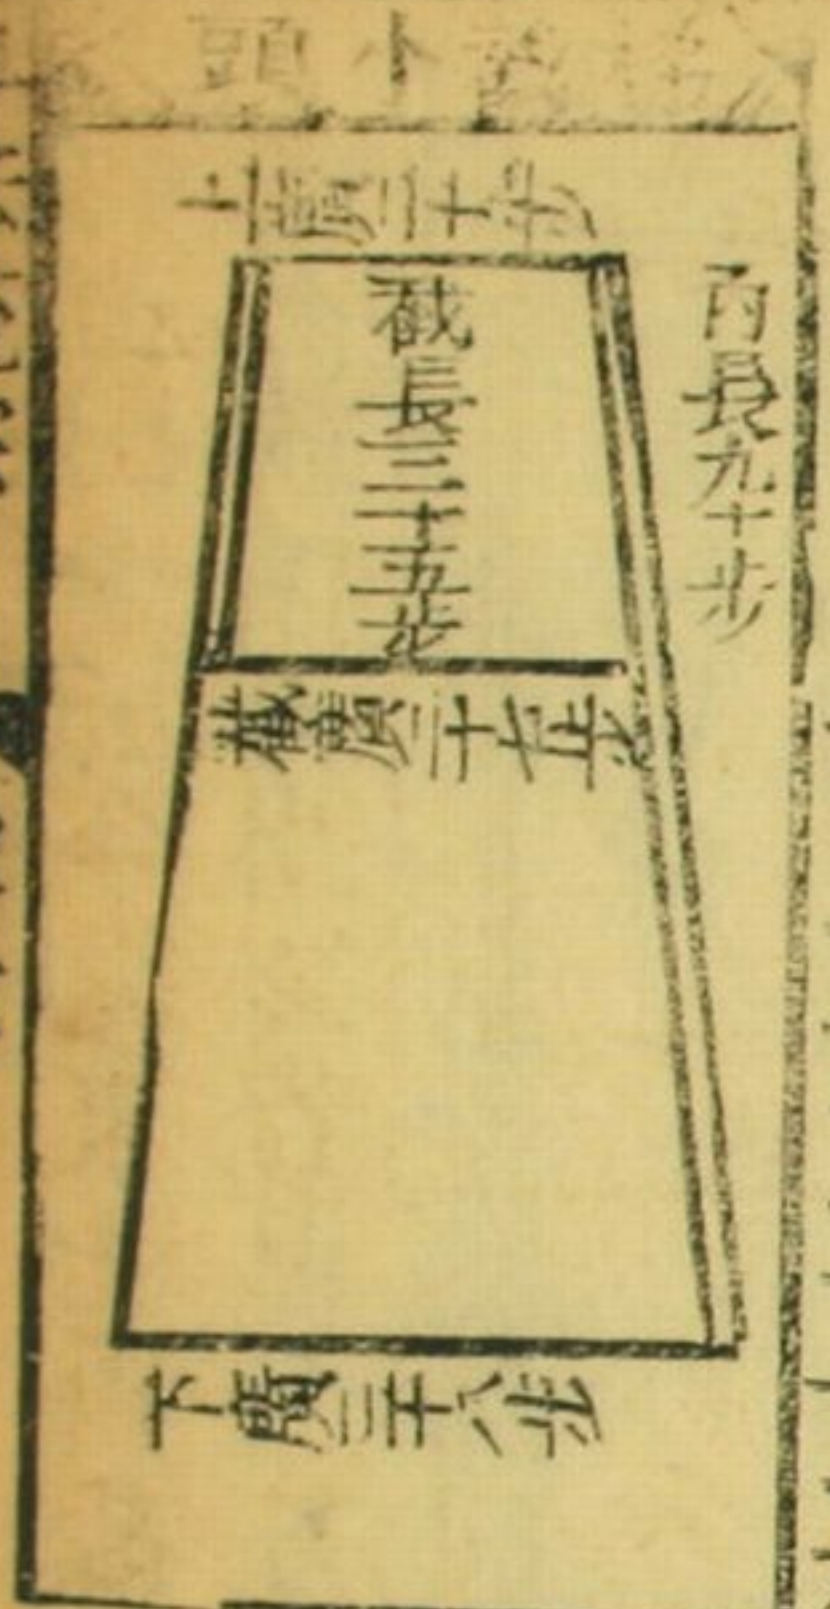 截小頭
上廣二十步
內長九十步
截長三十五步
截廣二十七步
下廣三十八步